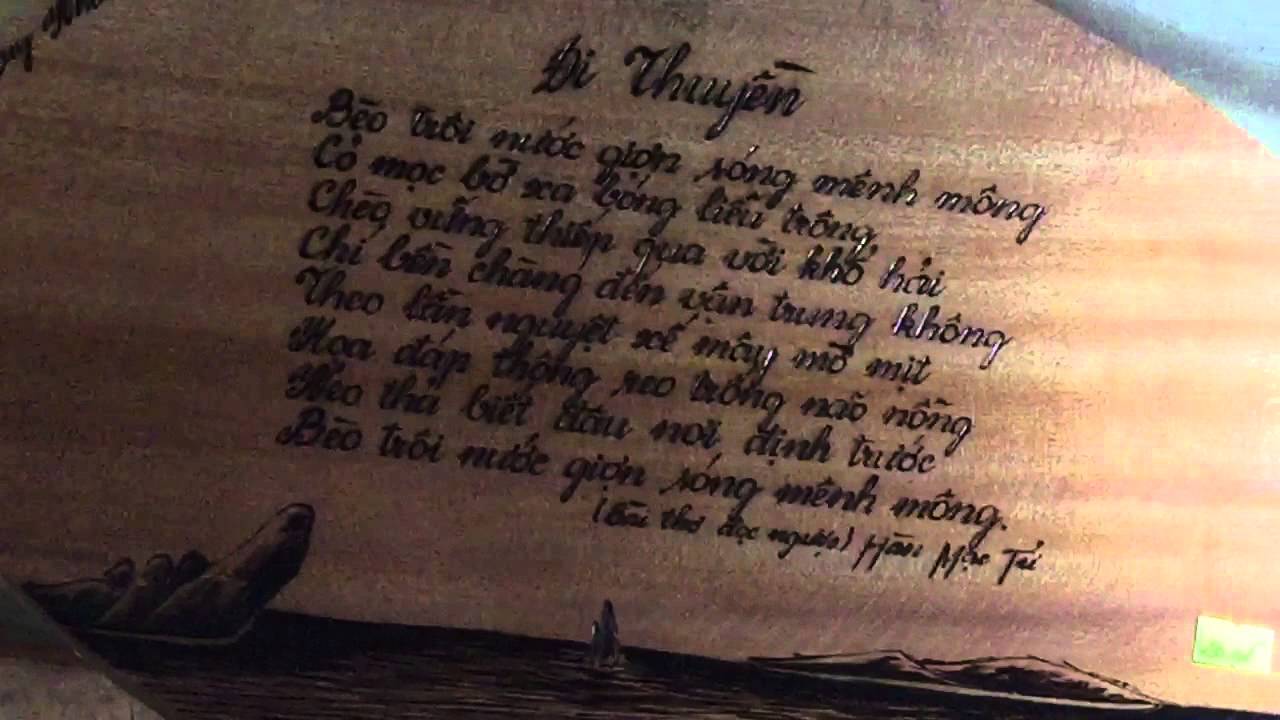 Đi Thuyền
Bèo trôi nước gợn sóng mênh mông
Cỏ mọc bờ xa bóng liễu trông
Chèo vững thiếp qua vời khổ hải
Chí bền chàng đến vận trung không
Theo lằn nguyệt xế mây mờ mịt
Họa đáp thông reo trống não nồng
Nẻo thả biết đâu nơi định trước
Bèo trôi nước gợn sóng mênh mông.
(Bài thơ đọc ngược) Hàn Mạc Tử